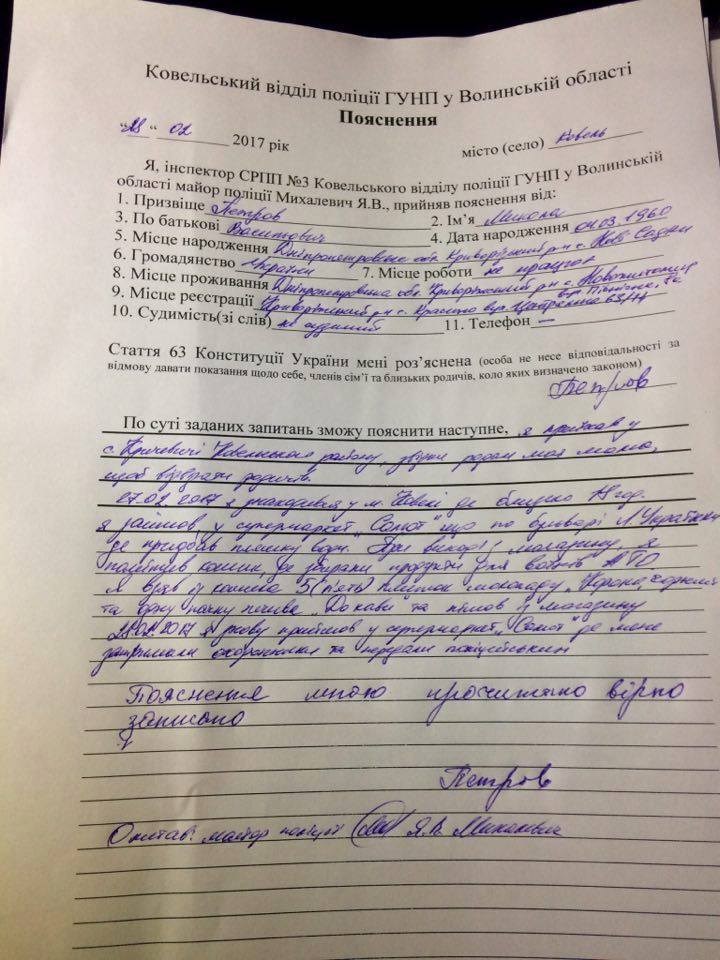 Ковельський відділ поліції ГУНП у Волинській області
Пояснення
"28" 02 2017 рік місто (село) Ковель
Я, інспектор СРПП №3 Ковельського відділу поліції ГУНП у Волинській
області майор поліції Михалевич Я.В., прийняв пояснення від:
1. Призвіще Петров 2. Ім'я Микола
3. По батькові 4. Дата народження 04.03.1960
5. Місце народження Дніпропетровська обл. Криворізький р-н с.
6. Громадянство Україна 7. Місце роботи не працює
8. Місце проживання Дніпропетровська обл. Криворізький р-н с.
9. Місце реєстрації Криворізький р-н с. вул.
10. Судимість(зі слів) не судимий 11. Телефон —
Стаття 63 Конституції України мені роз'яснена (особа не несе відповідальності за
відмову давати показання щодо себе, членів сім'ї та близьких родичів, коло яких визначено законом)
Петров
По суті заданих запитань зможу пояснити наступне, я приїхав у
с. Ковельського району, звідки родом моя мама,
щоб відвідати родичів.
27.02.2017 я знаходився у м. Ковелі де близько год.
я зайшов у супермаркет "Салют" що по бульварі Л. Українки
де придбав пляшку води. При виході з магазину я
помітив кошик, де збирали продукти для воїнів АТО
я взяв із кошика 5 (п'ять) плиток шоколаду "Корона,
та одну пачку печива "До кави" та пішов з магазину
28.02.2017 я знову прийшов у супермаркет "Салют" де мене
затримали охоронники та передали поліцейським
Пояснення мною прочитано вірно
записано
Петров
Опитав: майор поліції Я.В. Михалевич